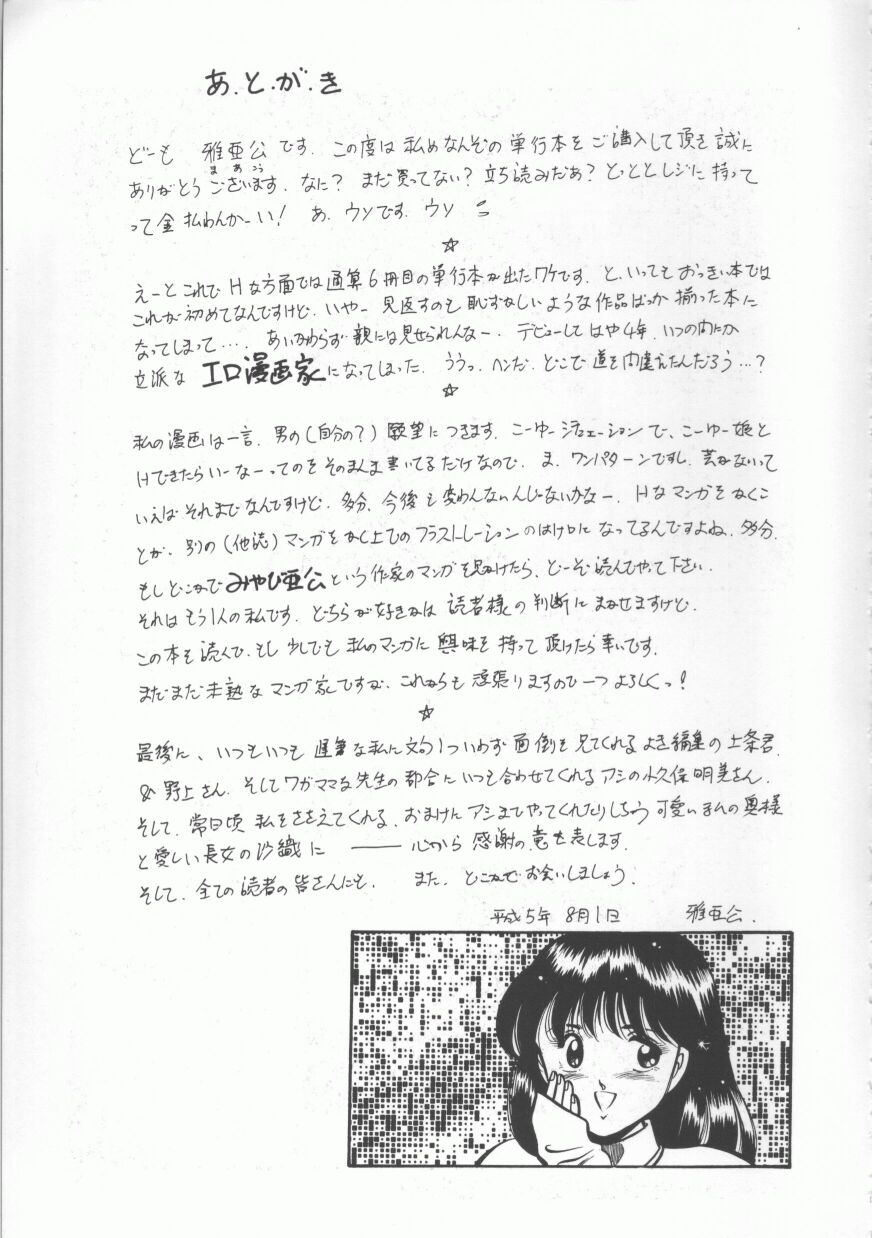 あ.と.が.き
どーも 雅亜公です。この度は私めなんぞの単行本をご購入して頂き誠に
まあこう
ありがとうございます。なに？まだ買ってない？立ち読みだあ？とっととレジに持って
って金払わんかーい！ あ、ウソです、ウソ
☆
えーとこれでHな方面では通算6冊目の単行本が出たワケです。と、いってもおっきい本では
これが初めてなんですけど。いやー 見返すのも恥ずかしいような作品ばっか揃った本に
なってしまって…。あいかわらず親には見せられんなー。デビューしてはや4年、いつの間にか
立派なエロ漫画家になってしまった。ううっ、ヘンだ。どこで道を間違えたんだろう…？
☆
私の漫画は一言、男の（自分の？）願望につきます。こーゆーシチュエーションで、こーゆー娘と
Hできたらいーなーってのをそのまんま書いてるだけなので、ま、ワンパターンですし、芸がないって
いえばそれまでなんですけど、多分、今後も変わんないんじゃないかなー。Hなマンガをかくこ
とが、別の（他誌）マンガをかく上でのフラストレーションのはけ口になってるんですよね、多分。
もしどこかでみやび亜公という作家のマンガを見かけたら、どーぞ読んでやって下さい。
それはもう1人の私です。どちらが好きかは読者様の判断にまかせますけど。
この本を読んで、もし少しでも私のマンガに興味を持って頂けたら幸いです。
まだまだ未熟なマンガ家ですが、これからも頑張りますので一つよろしくっ！
☆
最後に、いつもいつも遅筆な私に文句1ついわず面倒を見てくれるよき編集の上条君
& 野上さん。そしてワガママな先生の都合にいつも合わせてくれるアシの久保明美さん。
そして、常日頃私をささえてくれる、おまけにアシまでやってくれたりしちゃう可愛いまんの奥様
と愛しい長女の沙織に ――― 心から感謝の意を表します。
そして、全ての読者の皆さんにも。 また、どこかでお会いしましょう。
平成5年 8月1日 雅亜公.